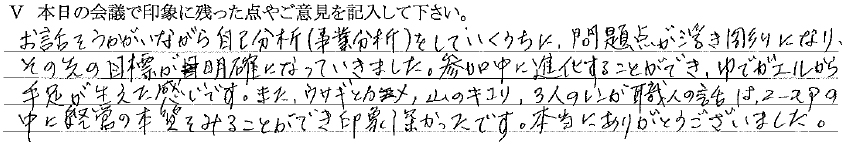 V 本日の会議で印象に残った点やご意見を記入して下さい。
お話をうかがいながら自己分析(事業分析)をしていくうちに、問題点が浮き彫りになり、
その先の目標が明確になっていきました。参加中に進化することができ、ゆでガエルから
手足が生えた感じです。また、ウサギとカメ、山のキコリ、3人のレンガ職人の話は、2-3Pの
中に経営の本質をみることができ印象深かったです。本当にありがとうございました。